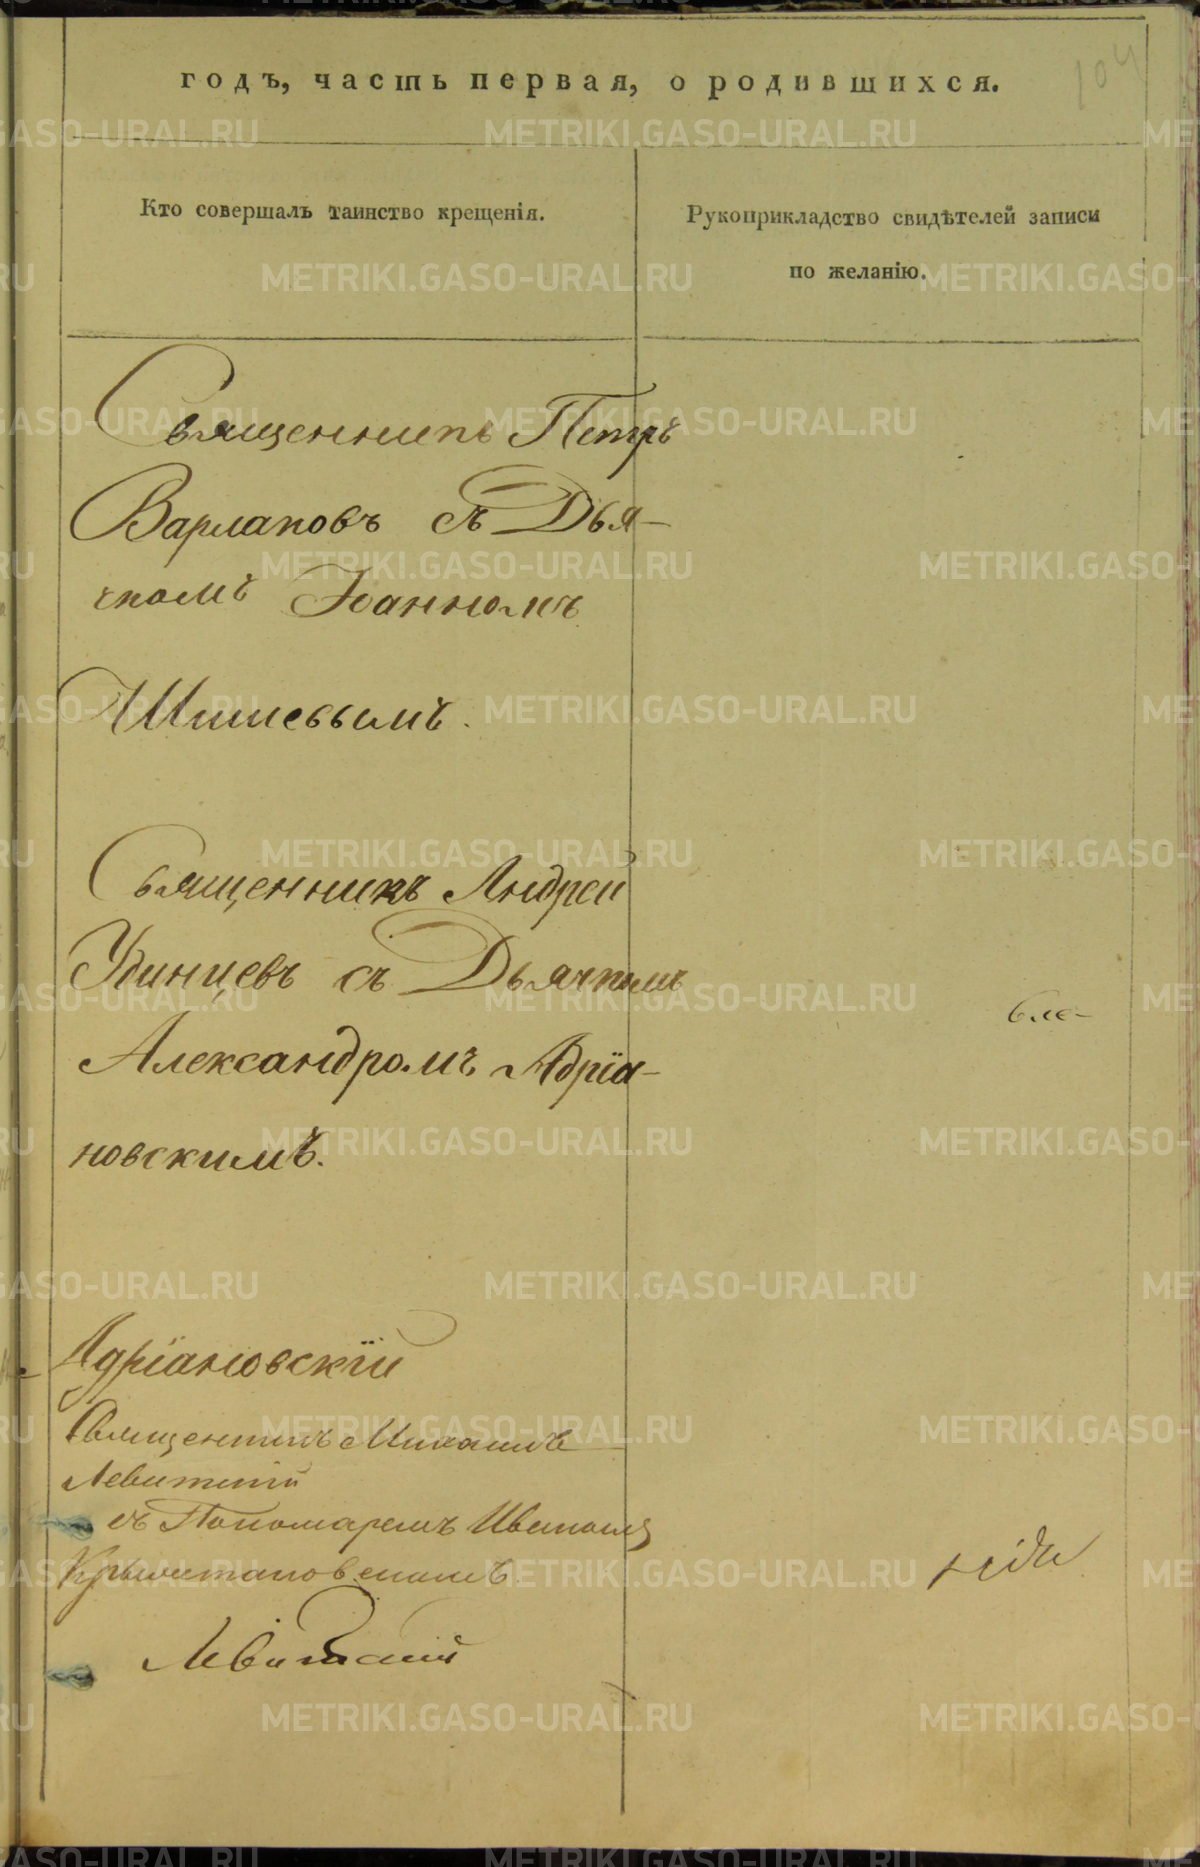 годъ, часть первая, о родившихся.
104
Кто совершалъ таинство крещенія.
Рукоприкладство свидѣтелей записи
по желанію.
Священникъ Петръ
Варлаковъ съ Дья-
чкомъ Іоанномъ
Шишевымъ.
Священникъ Андрей
Удинцевъ съ Дьячкомъ
Александромъ Адріа-
новскимъ.
Адріановскій
Священникъ Михаилъ
Левитскій
съ Пономаремъ Иваномъ
Левитскій
METRIKI.GASO-URAL.RU